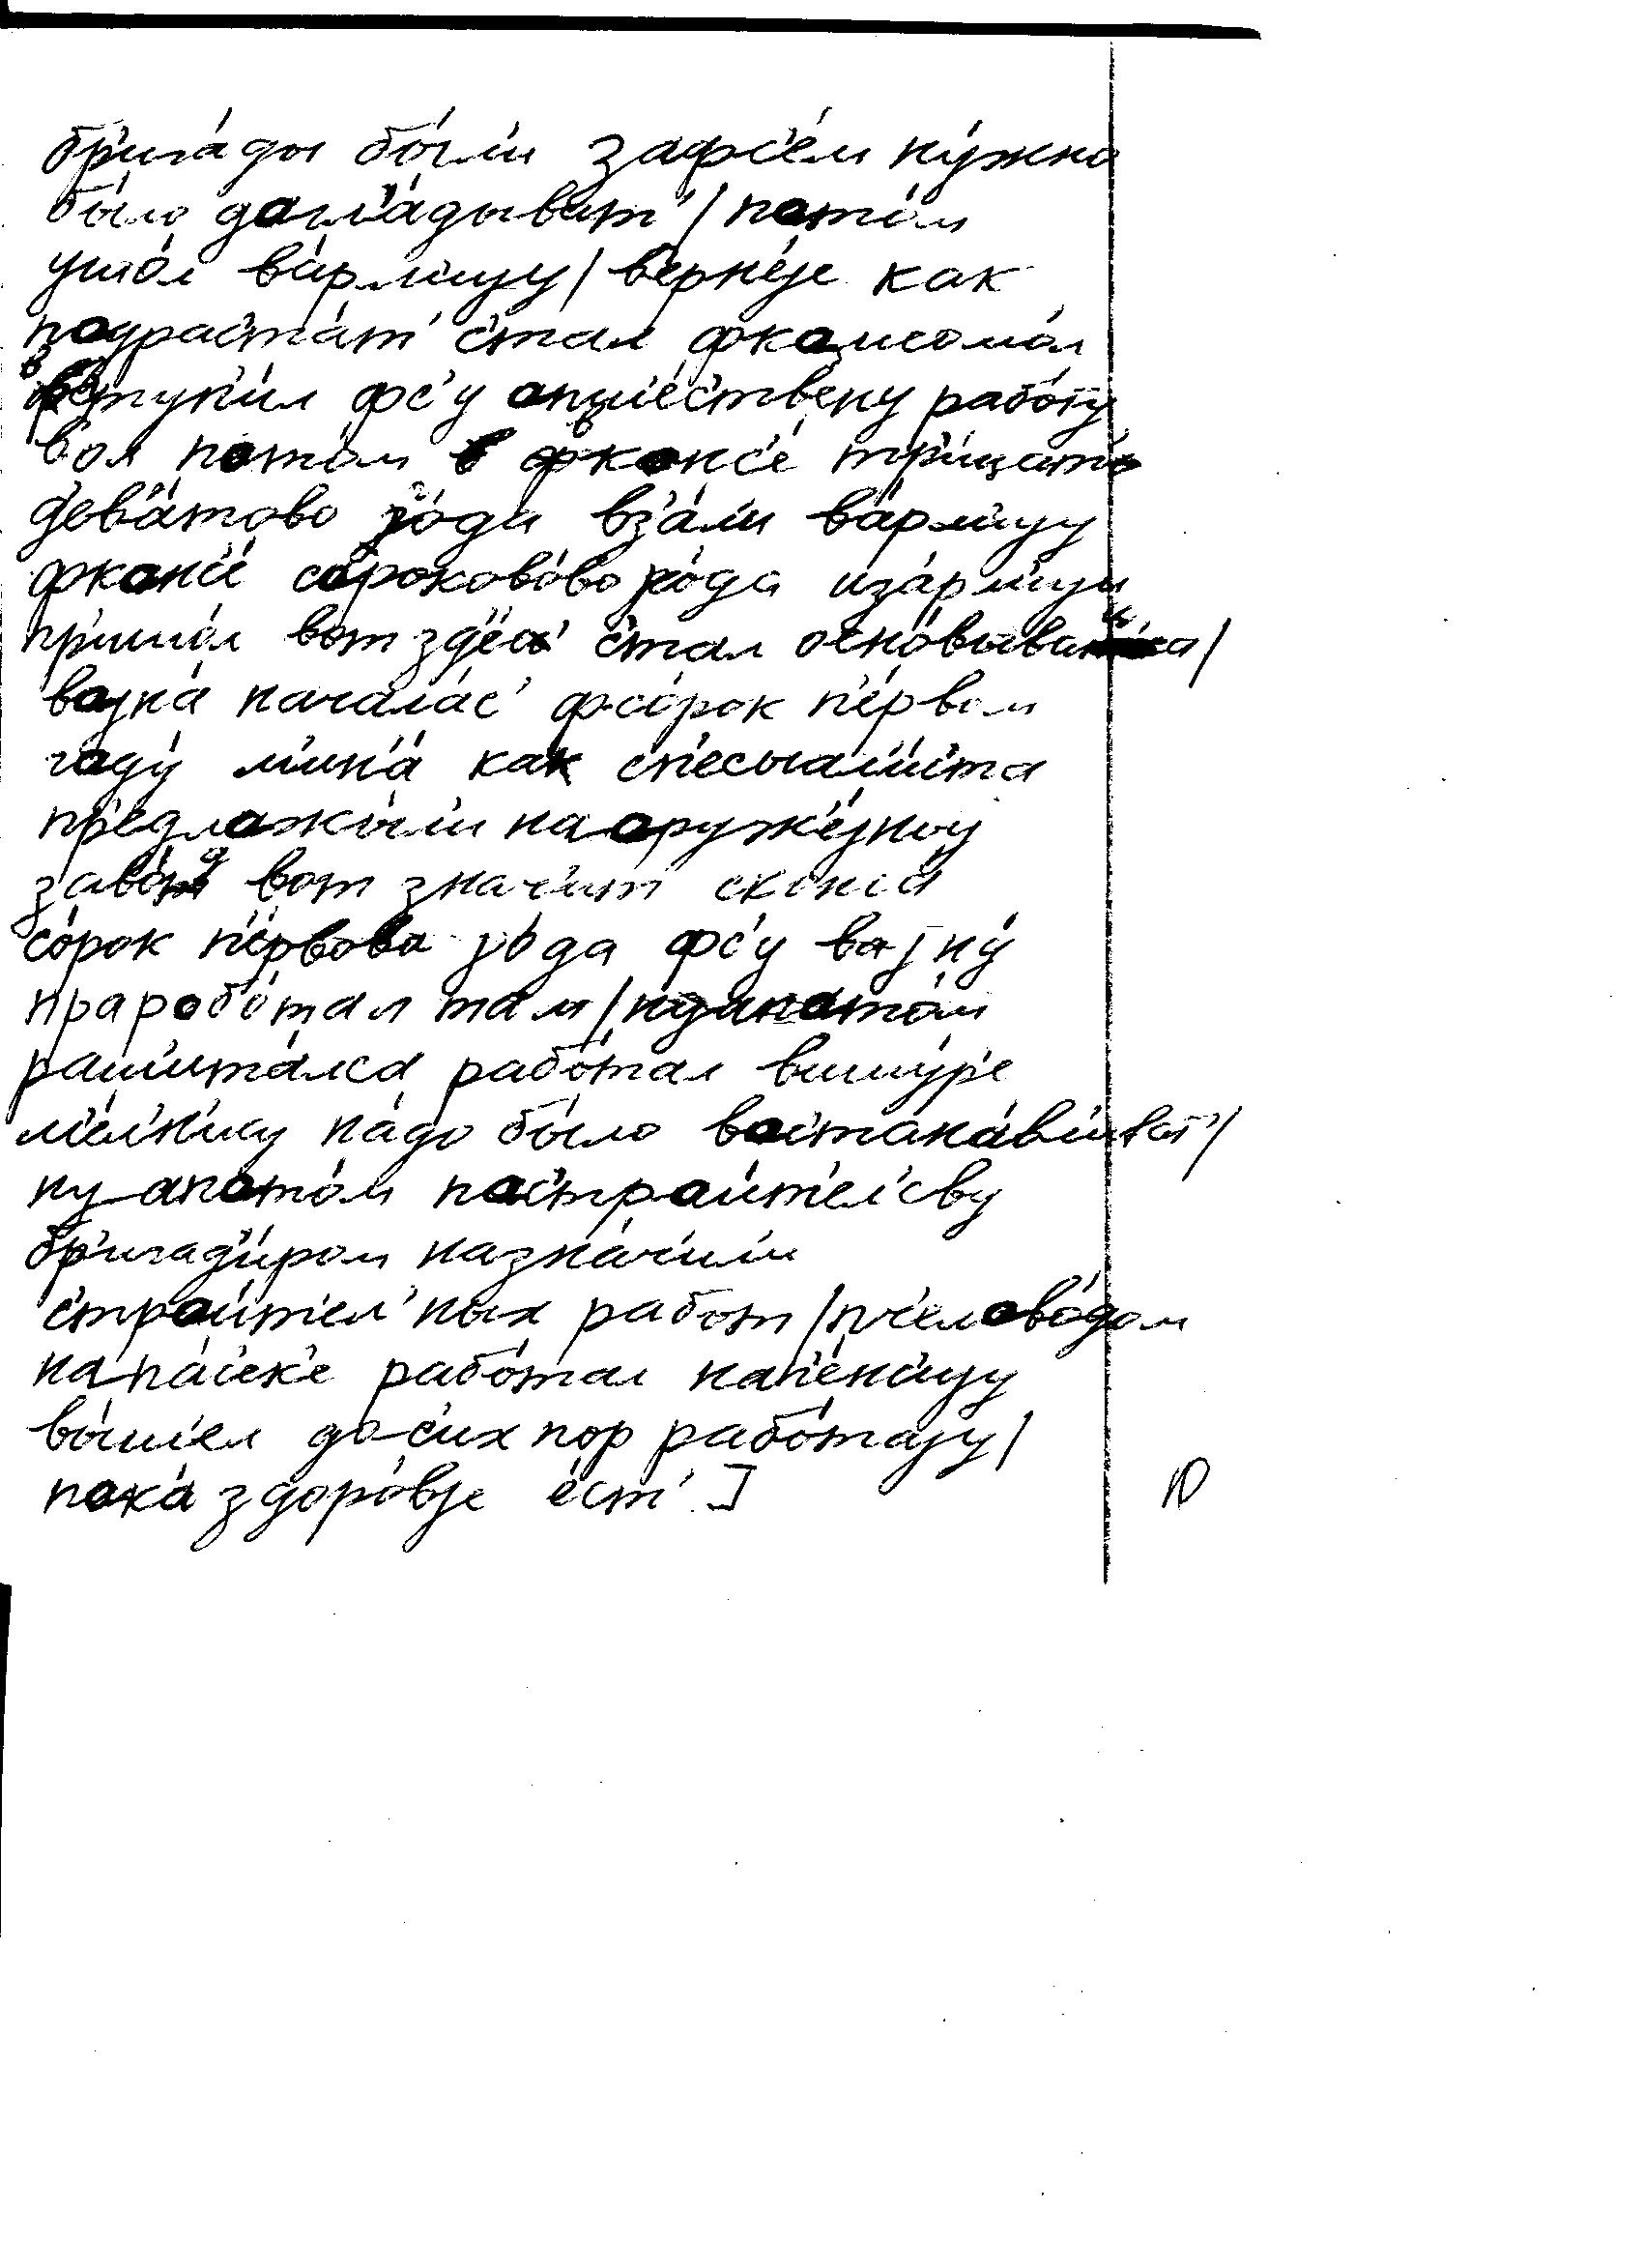 бр'ига́ды бы́л'и зафс'е́м ну́жно
бы́ло догл'а́дыват' / пото́м
ушо́л в а́рм'ију / в'ерне́је как
подраста́т' стал фкомсомо́л
вступ'и́л фс'у опшше́ств'ену рабо́ту
в'ол пото́м фконсе́ тр'и́цат'
д'ев'а́тово го́да вз'а́л'и ва́рм'ију
фконсе́ сороково́во го́да иза́рм'ији
пр'ишо́л вот зд'ес' стал осно́выват'са /
војна́ начала́с' фсо́рок п'е́рвом
году́ м'ин'а́ как сп'есыал'и́ста
пр'едложы́л'и наоруже́јноу
заво́д вот знач'ит сконса́
со́рок п'е́рвова го́да фс'у војну́
праробо́тал там / нуипото́м
рашшита́лса рабо́тал вишу́р'е
м'е́л'н'ицу на́до бы́ло востана́вл'иват' /
ну апото́м постро́ит'ел'сву
бр'игад'и́ром назна́ч'ил'и
строи́т'ел'ных работ / пч'елово́дом
напа́с'ек'е рабо́тал нап'е́нс'ију
вы́шел до сих пор рабо́тају /
пока́ здоро́вје јест' ]
10